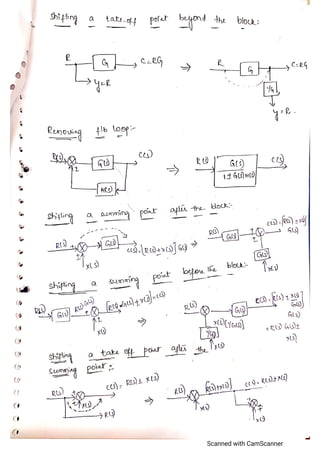 Shifting a take-off point beyond the block:
R G C=RG ⇒ R G C=RG
y=R 1/G
y=R.
Removing f/b loop:-
R(s) G(s) C(s) ⇒ R(s) G(s) C(s)
H(s) 1±G(s)H(s)
Shifting a summing point after the block:-
R(s) G(s) C(s)=[R(s)±x(s)]G(s) ⇒ R(s) G(s) C(s)=[R(s)±x(s)]G(s)
x(s) G(s)
x(s)
Shifting a summing point before the block:-
R(s) G(s) R(s)G(s) [R(s)G(s)±x(s)]=C(s) ⇒ R(s) G(s)
x(s) 1/G(s) = R(s)G(s)±x(s)
x(s)
Shifting a take off point after the summing point:-
R(s) C(s)=R(s)±x(s) ⇒ R(s) [R(s)±x(s)] C(s)=R(s)±x(s)
x(s) R(s) x(s) x(s)
Scanned with CamScanner